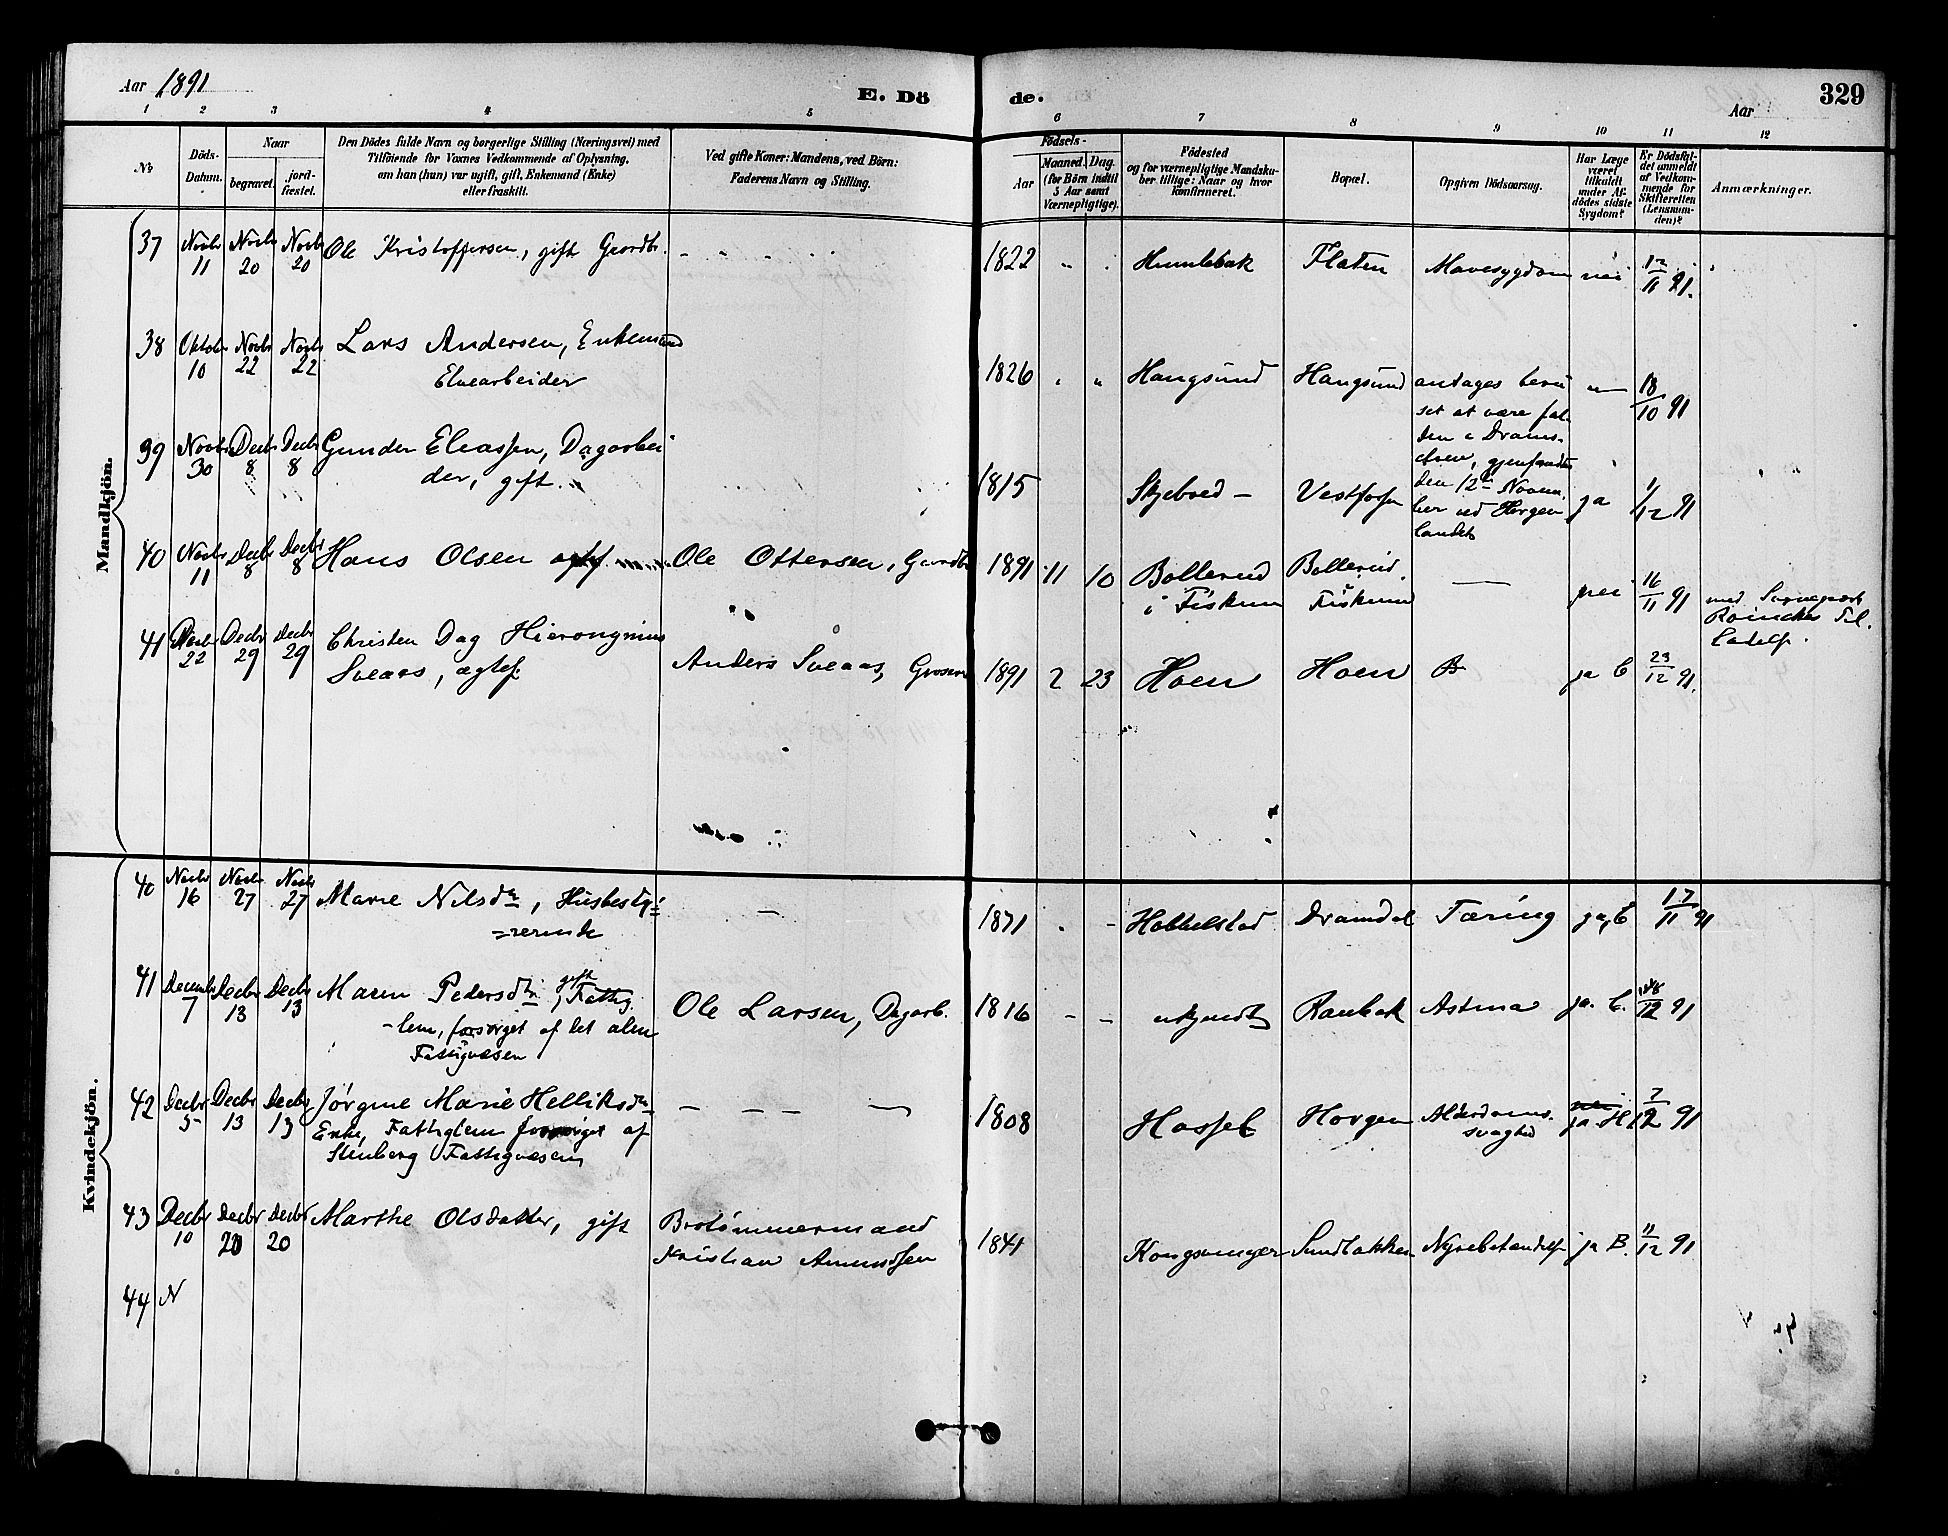 Aar 1891
E. Dö
de.
Aar
329
1 2 3 4 5 6 7 8 9 10 11 12
No.
Döds-
Datum.
Naar
begravet.
jord-
fæstet.
Den Dödes fulde Navn og borgerlige Stilling (Næringsvei) med
Tilföiende for Voxnes Vedkommende af Oplysning,
om han (hun) var ugift, gift, Enkemand (Enke)
eller fraskilt.
Ved gifte Koner: Mandens, ved Börn:
Faderens Navn og Stilling.
Födsels-
Aar
Maaned.
Dag.
(for Börn indtil
5 Aar samt
Værnepligtige).
Födested
og for værnepligtige Mandsku-
ber tillige: Naar og hvor
konfirmeret.
Bopæl.
Opgiven Dödsaarsag.
Har Læge
været
tilkaldt
under Af-
dödes sidste
Sygdom?
Er Dödsfal-
det anmeldt
af Vedkom-
mende for
Skifteretten
(Lensman-
den)?
Anmærkninger.
Mandkjön.
37 Novbr 11 Novbr 20 Novbr 20 Ole Kristoffersen, gift Gaardbr. 1822 Humlebæk Flaten Mavesygdom nei 12/11 91.
38 Oktobr 10 Novbr 22 Novbr 22 Lars Andersen, Enkemand
Elvearbeider
1826 Haugsund Haugsund antages beru
set at være fal-
den i Drams-
elven, gjenfandtes
den 12te Novem-
ber ved Horgen
landet
18/10 91
39 Novbr 30 Decbr 8 Decbr 8 Gunder Eliassen, Dagarbei
der, gift.
1815 Skjebred Vestfossen ja 1/12 91
40 Novbr 11 Decbr 8 Decbr 8 Hans Olsen Ole Ottersen, Gaardbr 1891 11 10 Bollerud
i Fiskum
Bollerud,
Fiskum
nei 16/11 91 med Sognepræst
Roincke Til
ladelse.
41 Decbr 22 Decbr 29 Decbr 29 Christen Dag Hieronymus
Sveaas, ægtef.
Anders Sveaas, Grosserer 1891 2 23 Hoen Hoen ja C 23/12 91.
Kvindekjön.
40 Novbr 16 Novbr 27 Novbr 27 Marie Nilsdtr, Husbesty-
=rerinde
1871 Hobbelstad Dramdal Tæring ja, C 17/11 91
41 Decembr 7 Decbr 13 Decbr 13 Maren Pedersdtr, gift Fattig
-lem, forsørget af det alm
Fattigvæsen
Ole Larsen, Dagarb. 1816 ukjendt Raubæk Astma ja. C. 12 91
42 Decbr 5 Decbr 13 Decbr 13 Jörgine Marie Helliksdtr
Enke, Fattiglem forsørget af
Stenberg Fattigvæsen
1808 Hassel Horgen Alderdoms-
svaghed
ja H 7/12 91
43 Decbr 10 Decbr 20 Decbr 20 Marthe Olsdatter, gift Brotømmermand
Kristian Amundsen
1841 Kongsvinger Sundbakken Nyrebetændelse ja B. 11/12 91
44 N